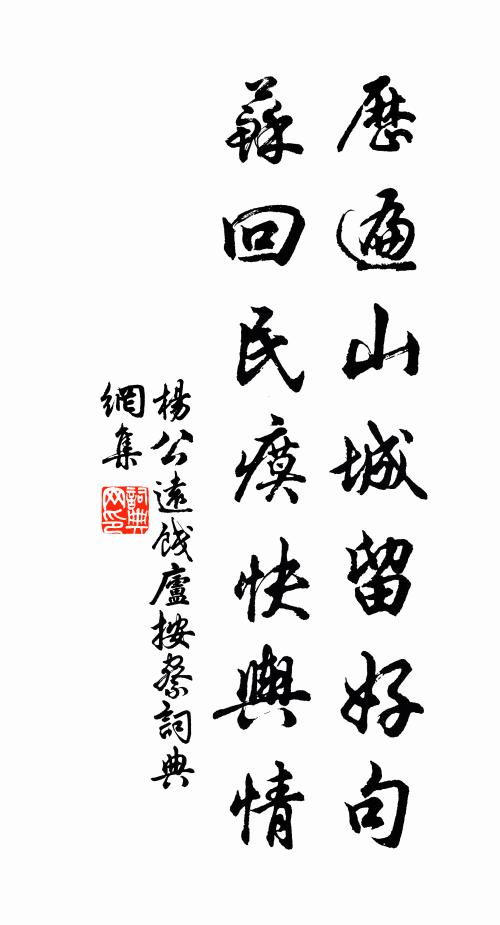 歷遍山城留好句
蘇回民瘼快輿情
楊公遠餞廬按察詞典
網集
詞典網印